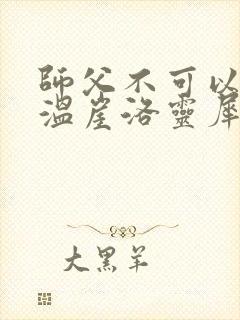 師父不可以
溫崖洛靈犀
大黑羊